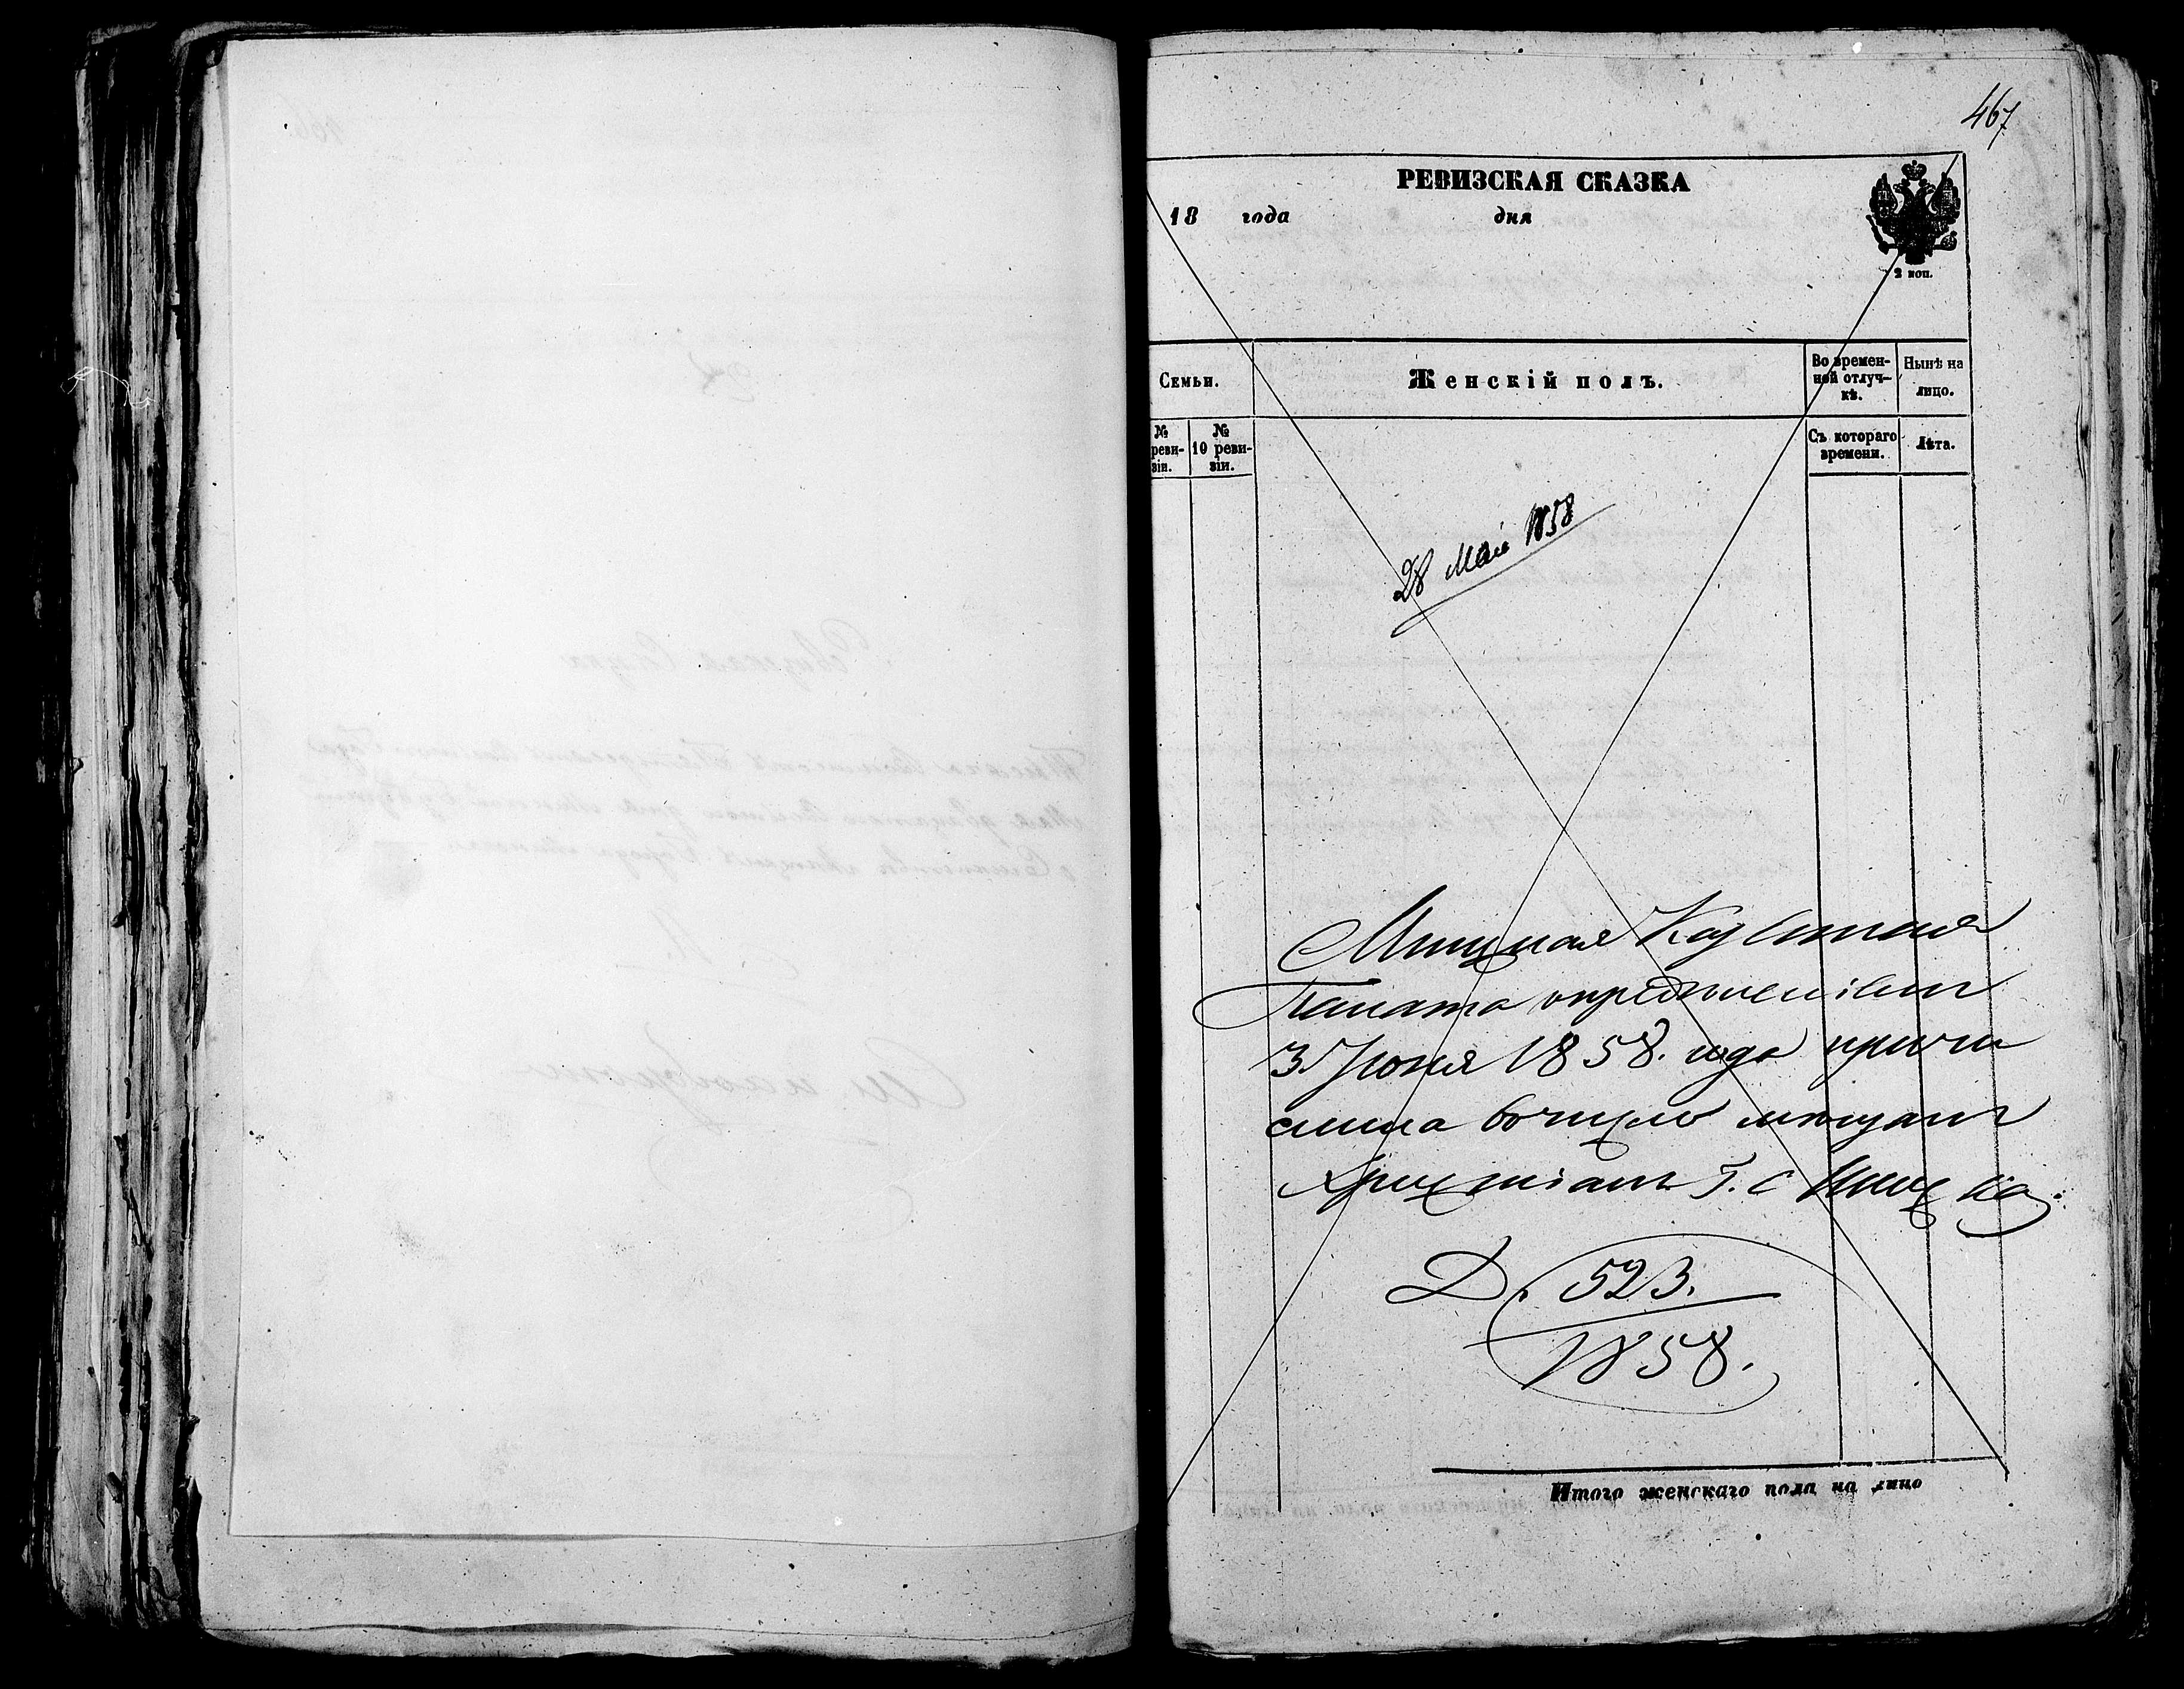 467
РЕВИЗСКАЯ СКАЗКА
18 года дня
2 коп.
Семьи.
Женскій полъ.
Во времен-
ной отлуч-
кѣ.
Нынѣ на
лицо.
№
реви-
зіи.
№
10 реви-
зіи.
Съ котораго
времени.
Лѣта.
28 Мая 1858
Минская Казенная
Палата опредѣленіемъ
3. Іюня 1858. года причи
слила вочисло мѣщанъ
Христіанъ Г. Минска:
Д. 523.
1858.
Итого женскаго пола на лицо